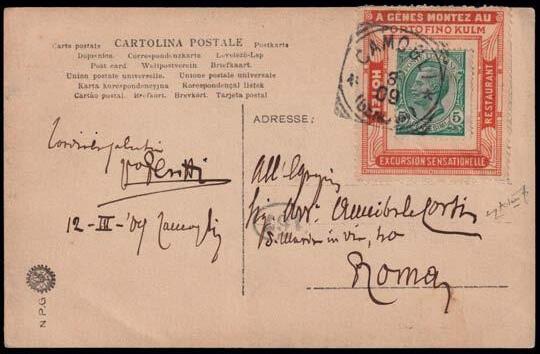 Carte postale CARTOLINA POSTALE Postkarte
Dopisnica. Correspondenzkarte. Levelező-Lap
Post card Weltpostverein Briefkaart.
Union postale universelle. Unione postale universale
Karta korrespondencyjna Korespondenční lístek
Cartão postal. Brefkort. Brevkort. Tarjeta postal
ADRESSE:
A GÊNES MONTEZ AU
PORTOFINO KULM
HOTEL
RESTAURANT
EXCURSION SENSATIONELLE
CAMOGLI
09
5
Cordiali saluti
12-III-'09 Camogli
All'Egregio
Sig. Avv. Annibale
in via, 40
Roma
N.P.G